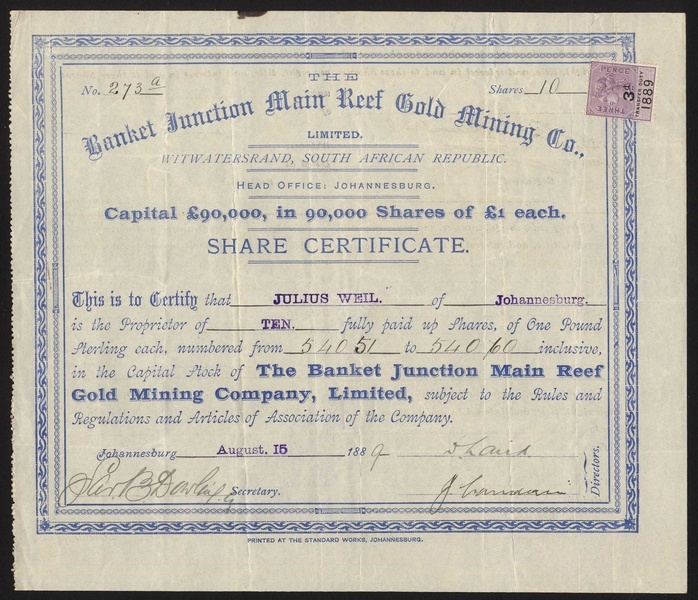 THE
No. 273 a
Shares 10
Banket Junction Main Reef Gold Mining Co.,
LIMITED.
WITWATERSRAND, SOUTH AFRICAN REPUBLIC.
HEAD OFFICE: JOHANNESBURG.
Capital £90,000, in 90,000 Shares of £1 each.
SHARE CERTIFICATE.
This is to Certify that JULIUS WEIL. of Johannesburg.
is the Proprietor of TEN. fully paid up Shares, of One Pound
Sterling each, numbered from 54051 to 54060 inclusive,
in the Capital Stock of The Banket Junction Main Reef
Gold Mining Company, Limited, subject to the Rules and
Regulations and Articles of Association of the Company.
Johannesburg August. 15 1889
Secretary.
Directors.
PRINTED AT THE STANDARD WORKS, JOHANNESBURG.
THREE PENCE
3d.
TRANSFER DUTY
1889